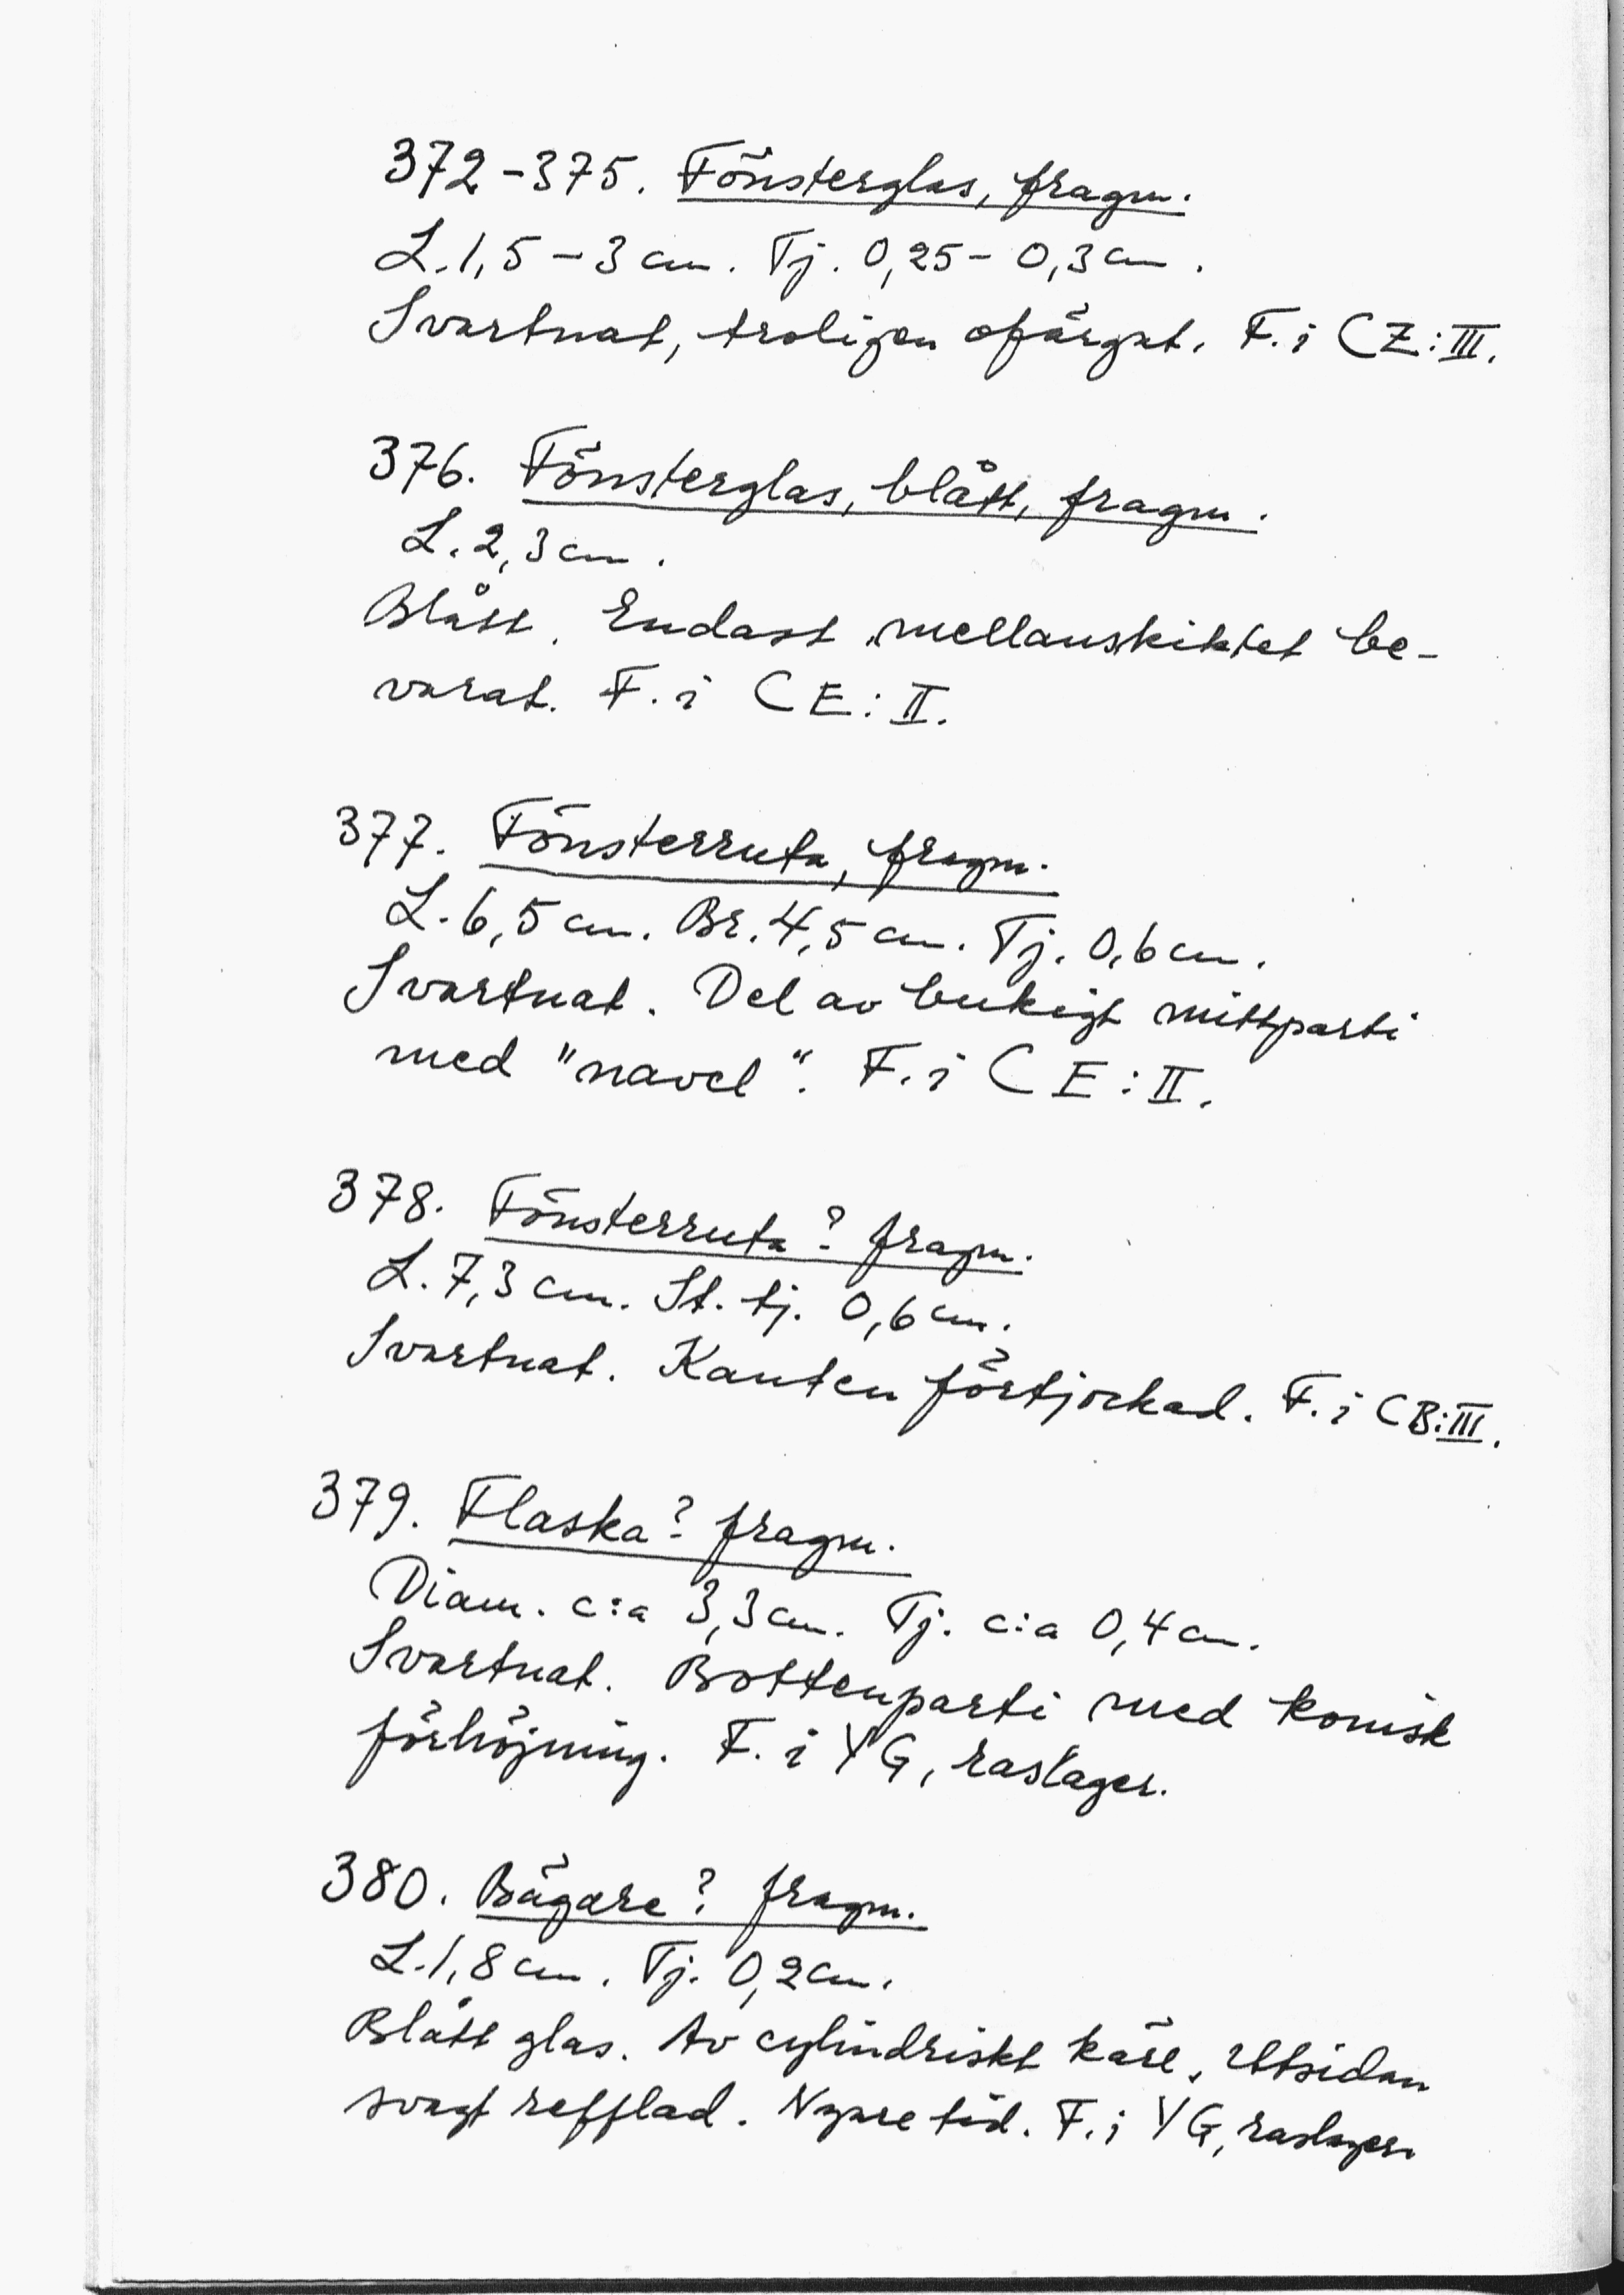 372-375. Fönsterglas, fragm.
L. 1,5-3 cm. Tj. 0,25-0,3 cm.
Svartnat, troligen ofärgat. F. i CZ:III.
376. Fönsterglas, blått, fragm.
L. 2,3 cm.
Blått. Endast mellanskiktet be-
varat. F. i CE:II.
377. Fönsterruta, fragm.
L. 6,5 cm. Br. 4,5 cm. Tj. 0,6 cm.
Svartnat. Del av bukigt mittparti
med "navel". F. i CE:II.
378. Fönsterruta? fragm.
L. 7,3 cm. St. tj. 0,6 cm.
Svartnat. Kanten förtjockad. F. i CB:III.
379. Flaska? fragm.
Diam. c:a 3,3 cm. Tj. c:a 0,4 cm.
Svartnat. Bottenparti med konisk
förhöjning. F. i YG, raslager.
380. Bägare? fragm.
L. 1,8 cm. Tj. 0,2 cm.
Blått glas. Av cylindriskt kärl. Utsidan
svagt refflad. Nyare tid. F. i YG, raslager.